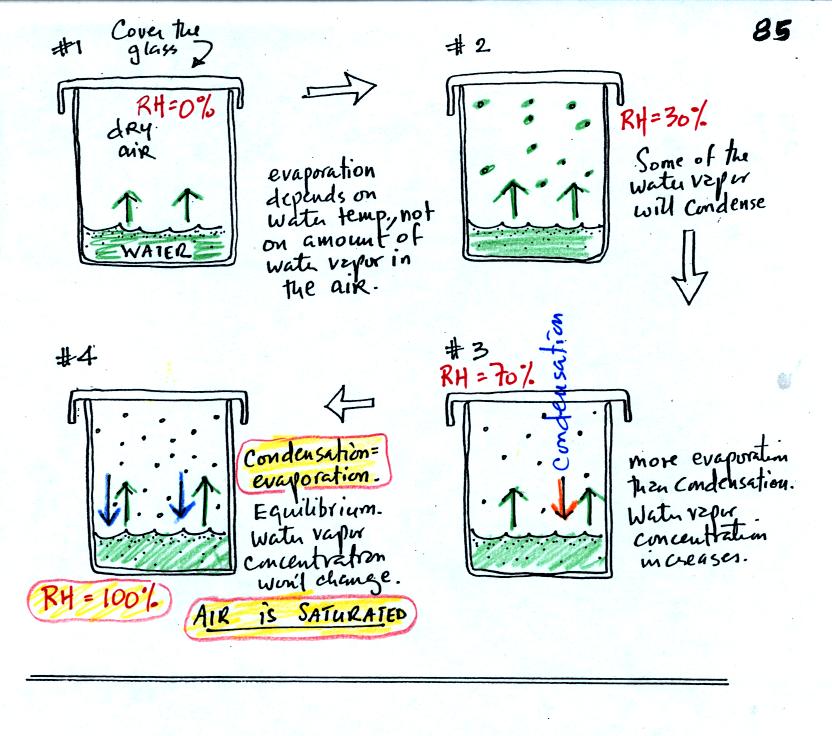 85
#1 Cover the
glass
RH=0%
dry
air
WATER
evaporation
depends on
water temp., not
on amount of
water vapor in
the air.
#2
RH=30%
Some of the
water vapor
will condense
#3
RH=70%
Condensation
more evaporation
than condensation.
Water vapor
concentration
increases.
#4
Condensation=
evaporation.
Equilibrium.
Water vapor
concentration
won't change.
RH=100%
AIR is SATURATED